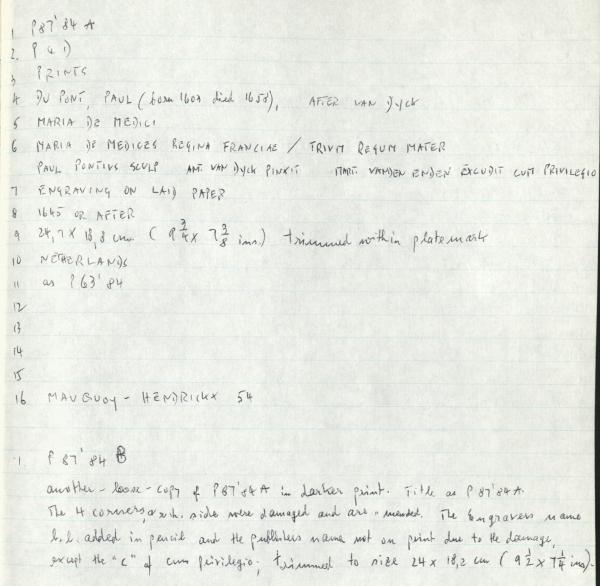 1 P87'84 A
2. P 41)
3 PRINTS
4 DU PONT, PAUL (born 1603 died 1658), AFTER VAN DYCK
5 MARIA DE MEDICI
6 MARIA DE MEDICES REGINA FRANCIAE / TRIUM REGUM MATER
PAUL PONTIUS SCULP ANT. VAN DYCK PINXIT MART. VANDEN ENDEN EXCUDIT CUM PRIVILEGIO
7 ENGRAVING ON LAID PAPER
8 1645 OR AFTER
9 24,7 X 18,8 cm ( 9 3/4 x 7 3/8 ins.) trimmed within platemark
10 NETHERLANDS
11 as P63'84
12
13
14
15
16 MAUQUOY - HENDRICKX 54
1 P87'84 B
another - loose - copy of P87'84A in darker print. Title as P87'84A.
The 4 corners, r.h. side were damaged and are mended. The Engravers name
l.l. added in pencil and the publishers name not on print due to the damage,
except the "c" of cum privilegio; trimmed to size 24 x 18,2 cm ( 9 1/2 x 7 1/4 ins)-